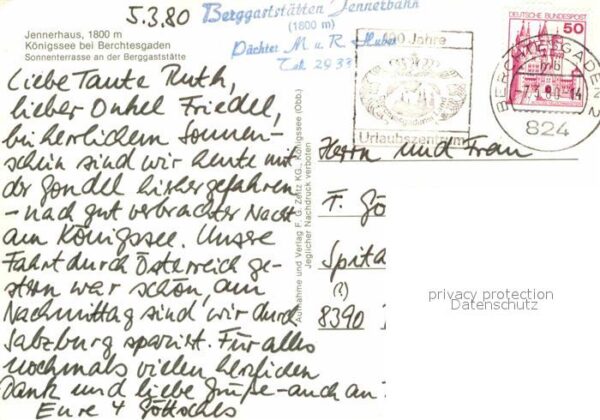 5.3.80
Berggaststätten Jennerbahn
(1800 m)
Pächter M u. R Huber
Tel. 2933
Jennerhaus, 1800 m
Königssee bei Berchtesgaden
Sonnenterrasse an der Berggaststätte
Liebe Tante Ruth,
lieber Onkel Friedel,
bei herrlichem Sonnen-
schein sind wir heute mit
der Gondel hierhergefahren
- nach gut verbrachter Nacht
am Königssee. Unsre
Fahrt durch Österreich ge-
stern war schön, am
Nachmittag sind wir durch
Salzburg spaziert. Für alles
nochmals vielen herzlichen
Dank und liebe Grüße - auch an
Eure 4 Göttsches
Aufnahme und Verlag F. G. Zeitz KG., Königssee (Obb.)
Jeglicher Nachdruck verboten
Jahre
Urlaubszentrum
DEUTSCHE BUNDESPOST
50
BERCHTESGADEN 2
7.3.80-14
824
Herrn und Frau
F. Gö
Spita
(?)
8390
privacy protection
Datenschutz